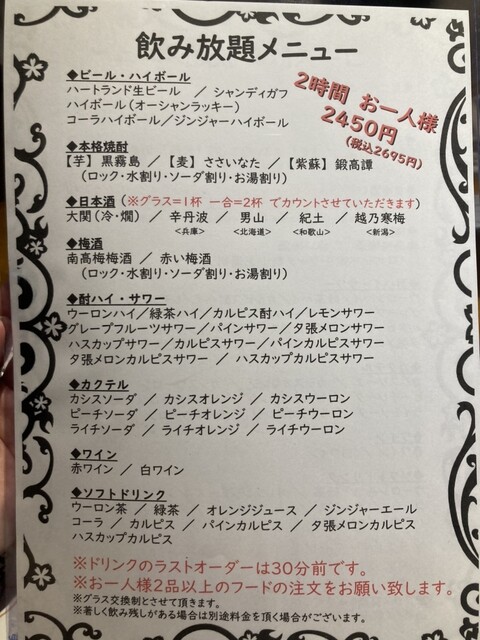 飲み放題メニュー
2時間 お一人様
2450円
(税込2695円)
◆ビール・ハイボール
ハートランド生ビール ／ シャンディガフ
ハイボール(オーシャンラッキー)
コーラハイボール／ジンジャーハイボール
◆本格焼酎
【芋】黒霧島 ／【麦】ささいなた ／【紫蘇】鍛高譚
(ロック・水割り・ソーダ割り・お湯割り)
◆日本酒(※グラス=1杯 一合=2杯 でカウントさせていただきます)
大関(冷・燗) ／ 辛丹波 ／ 男山 ／ 紀土 ／ 越乃寒梅
<兵庫> <北海道> <和歌山> <新潟>
◆梅酒
南高梅梅酒 ／ 赤い梅酒
(ロック・水割り・ソーダ割り・お湯割り)
◆酎ハイ・サワー
ウーロンハイ／緑茶ハイ／カルピス酎ハイ／レモンサワー
グレープフルーツサワー／パインサワー／夕張メロンサワー
ハスカップサワー／カルピスサワー／パインカルピスサワー
夕張メロンカルピスサワー ／ ハスカップカルピスサワー
◆カクテル
カシスソーダ ／ カシスオレンジ ／ カシスウーロン
ピーチソーダ ／ ピーチオレンジ ／ ピーチウーロン
ライチソーダ ／ ライチオレンジ ／ ライチウーロン
◆ワイン
赤ワイン ／ 白ワイン
◆ソフトドリンク
ウーロン茶 ／ 緑茶 ／ オレンジジュース ／ ジンジャーエール
コーラ ／ カルピス ／ パインカルピス ／ 夕張メロンカルピス
ハスカップカルピス
※ドリンクのラストオーダーは30分前です。
※お一人様2品以上のフードの注文をお願い致します。
※グラス交換制とさせて頂きます。
※著しく飲み残しがある場合は別途料金を頂く場合がございます。